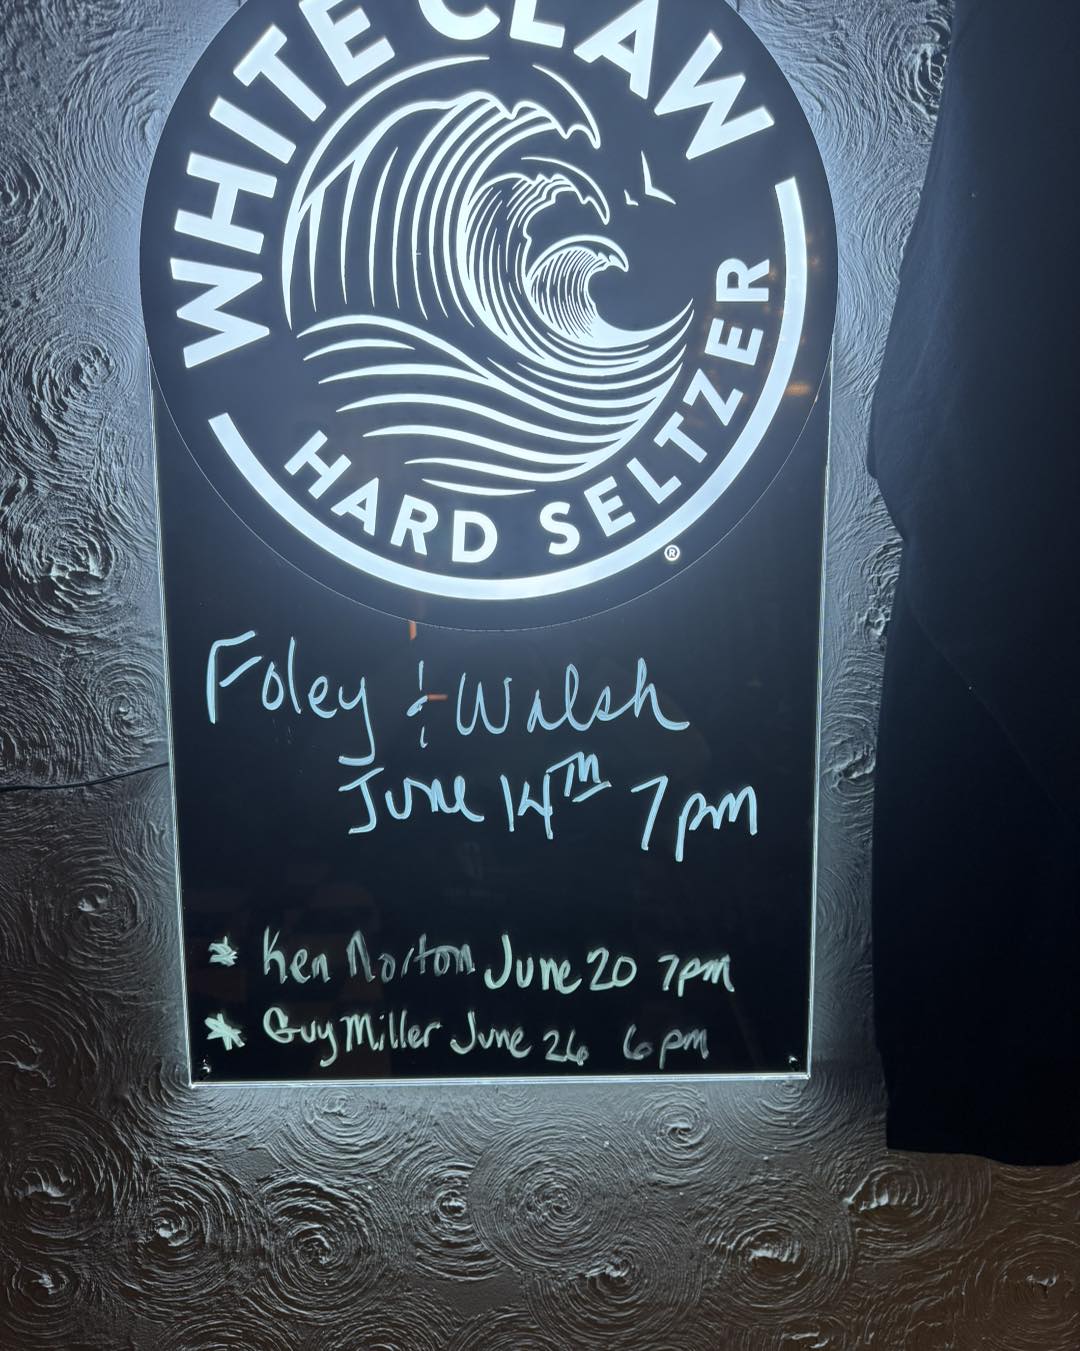 WHITE CLAW
HARD SELTZER
®
Foley & Walsh
June 14TH 7pm
* Ken Norton June 20 7pm
* Guy Miller June 26 6pm